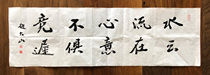 水流心不竞
云在意俱遲